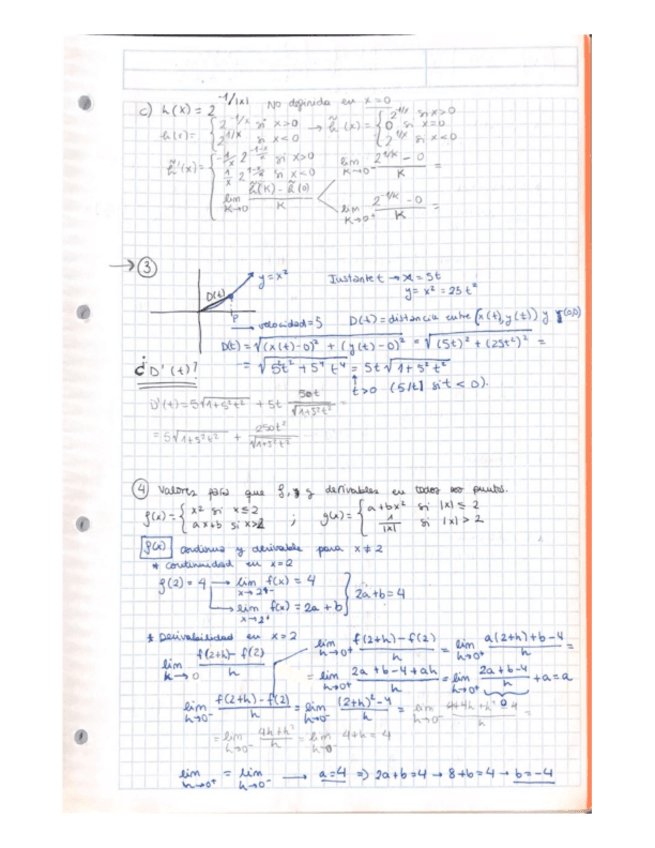 c) h(x) = 2^{-1/|x|} No definida en x=0
h(x) = { 2^{-1/x} si x>0 → h̃(x) = { 2^{-1/x} si x>0
2^{1/x} si x<0 0 si x=0
2^{1/x} si x<0
h̃'(x) = { si x>0 lim_{K→0^-} (2^{1/K} - 0)/K =
si x<0
lim_{K→0} (h̃(K) - h̃(0))/K lim_{K→0^+} (2^{-1/K} - 0)/K =
→ ③
y = x² Instante t → x = 5t
D(t) y = x² = 25t²
→ velocidad = 5 D(t) = distancia entre (x(t), y(t)) y (0,0)
D(t) = √((x(t)-0)² + (y(t)-0)²) = √((5t)² + (25t²)²) =
= √(5²t² + 5⁴t⁴) = 5t√(1+5²t²)
¿D'(t)? t>0 (5|t| si t<0).
D'(t) = 5√(1+5²t²) + 5t 50t/√(1+5²t²) =
= 5√(1+5²t²) + 250t²/√(1+5²t²)
④ Valores para que f, y g derivables en todos sus puntos.
f(x) = { x² si x≤2 ; g(x) = { a+bx² si |x| ≤ 2
ax+b si x>2 1/|x| si |x| > 2
f(x) continua y derivable para x≠2
* continuidad en x=2
f(2) = 4 → lim_{x→2^-} f(x) = 4
2a+b=4
→ lim_{x→2^+} f(x) = 2a+b
* Derivabilidad en x=2 lim_{h→0^+} (f(2+h)-f(2))/h = lim_{h→0^+} (a(2+h)+b-4)/h =
lim_{h→0} (f(2+h)-f(2))/h = lim_{h→0^+} (2a+b-4+ah)/h = lim_{h→0^+} (2a+b-4)/h + a = a
0
lim_{h→0^-} (f(2+h)-f(2))/h = lim_{h→0^-} ((2+h)²-4)/h = lim_{h→0^-} (4+4h+h²-4)/h =
= lim_{h→0^-} (4h+h²)/h = lim_{h→0^-} 4+h = 4
lim_{h→0^+} = lim_{h→0^-} → a=4 ⇒ 2a+b=4 → 8+b=4 → b=-4